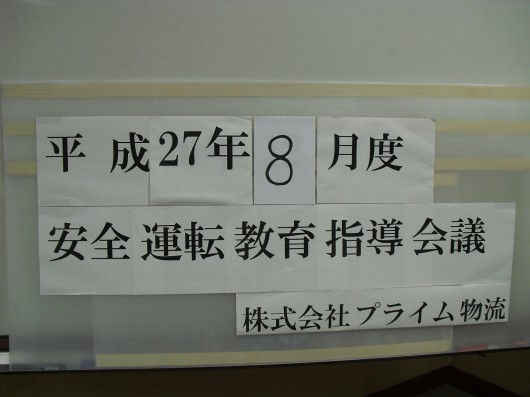 平成27年8月度
安全運転教育指導会議
株式会社プライム物流